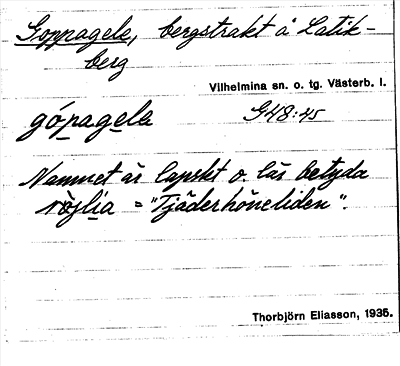 Goppagele, bergstrakt å Latik-
berg
Vilhelmina sn. o. tg. Västerb. l.
gópagele G48:45
Namnet är lapskt o. lär betyda
röjlia = "Tjäderhöneliden".
Thorbjörn Eliasson, 1935.